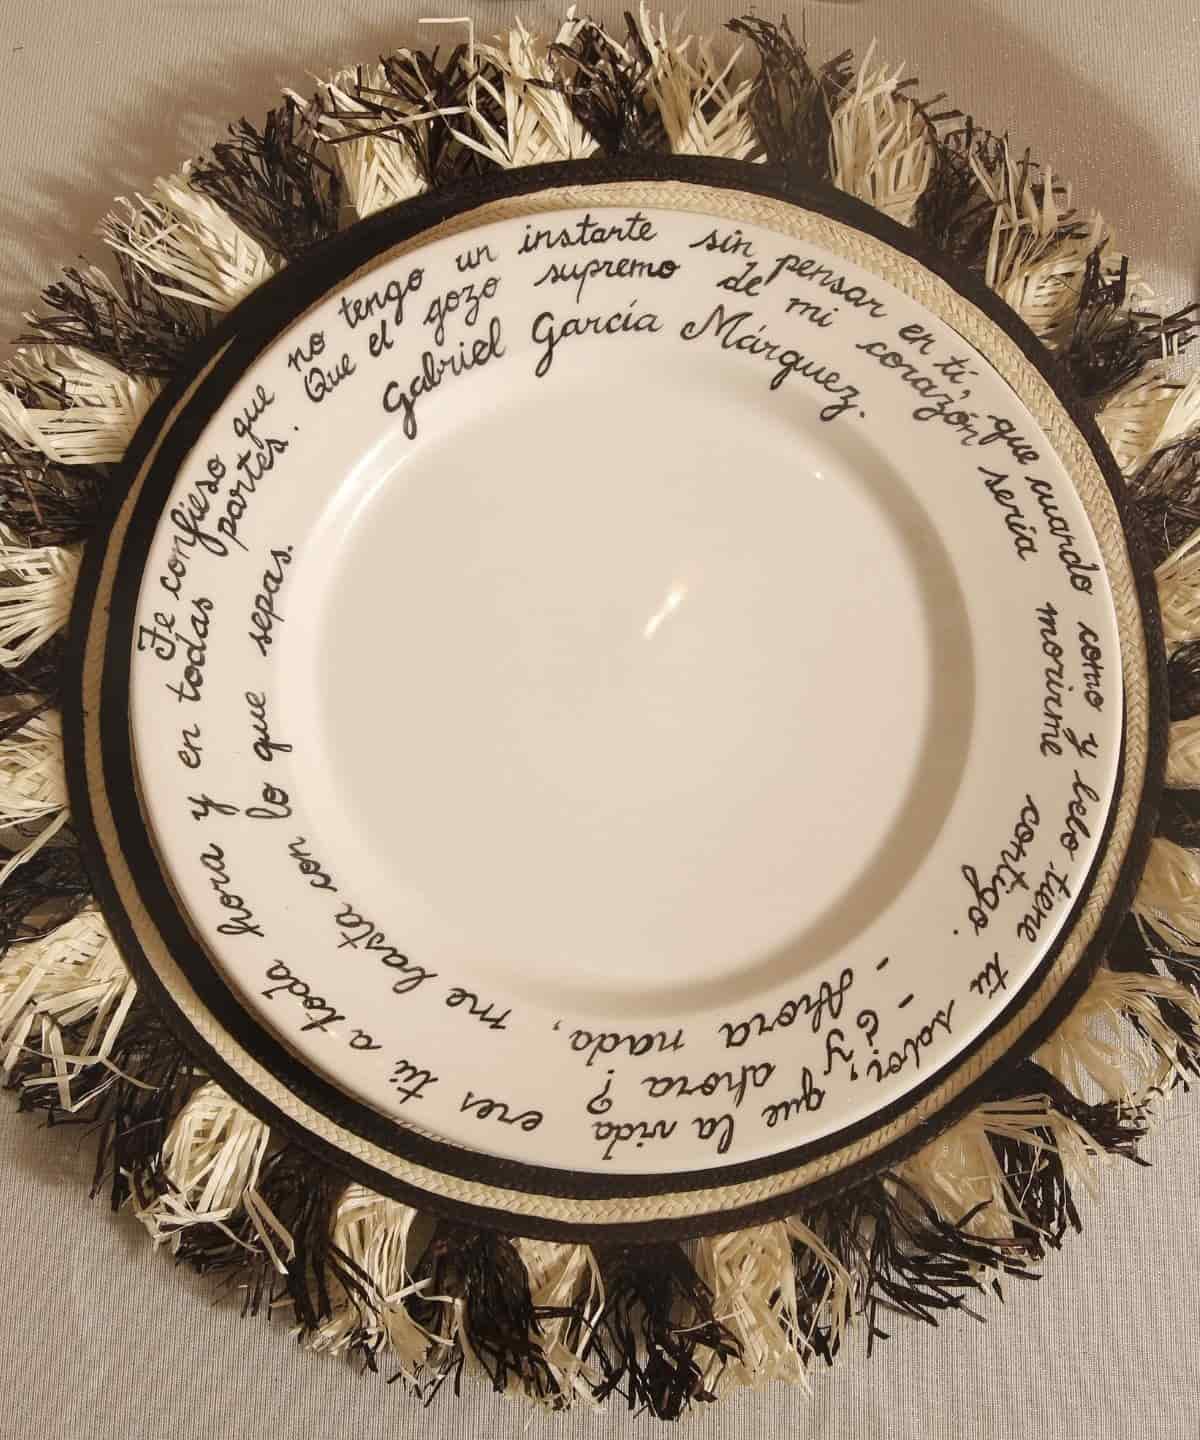 Te confieso que no tengo un instante sin pensar en tí, que cuando como y bebo tiene tu sabor, que la vida eres tú a toda hora y en todas
partes. Que el gozo supremo de mi corazón sería morirme contigo.
- ¿y ahora?
- Ahora nada, me basta con lo que sepas.
Gabriel García Márquez.